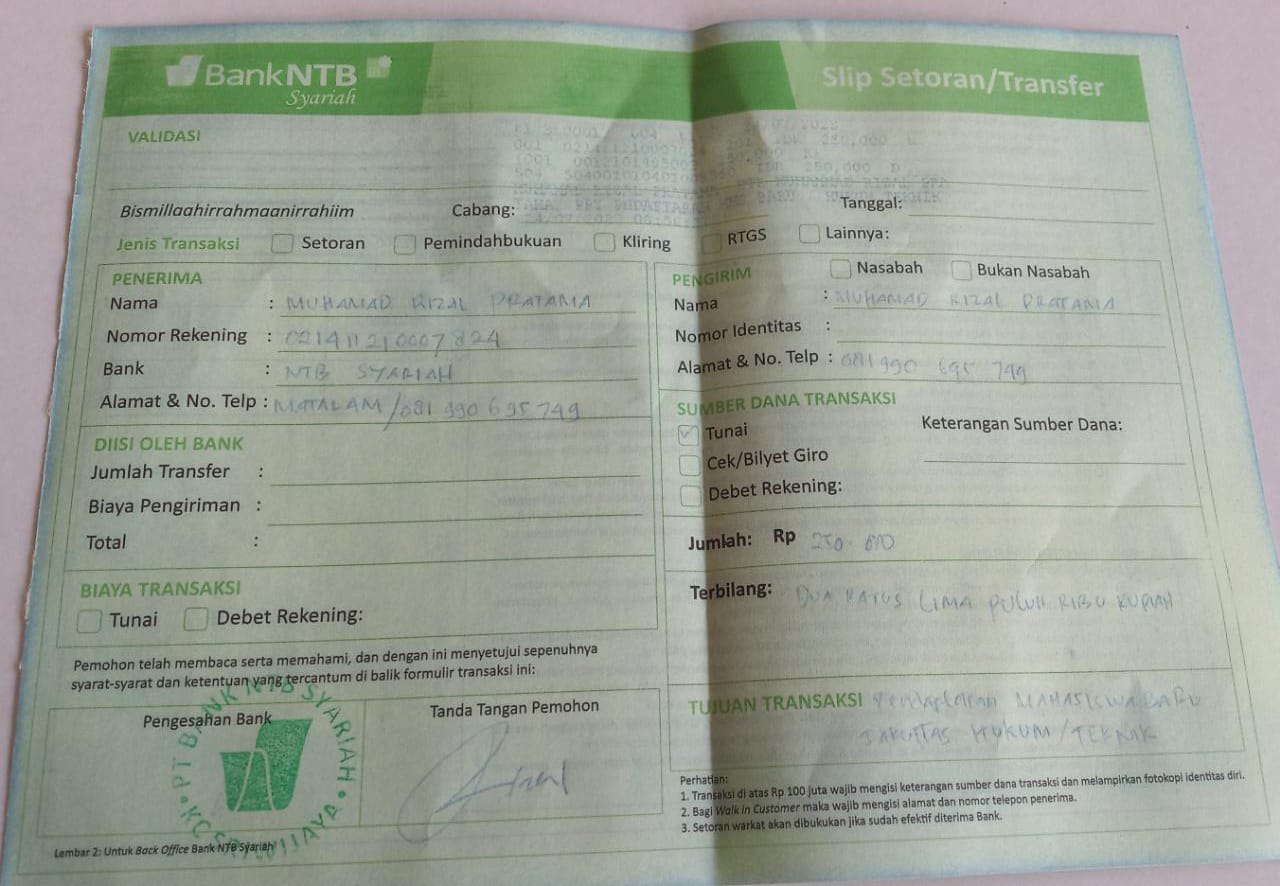 BankNTB
Syariah
Slip Setoran/Transfer
VALIDASI
250,000
250,000 D
Bismillaahirrahmaanirrahiim
Cabang:
Tanggal:
Jenis Transaksi
Setoran
Pemindahbukuan
Kliring
RTGS
Lainnya:
PENERIMA
Nama : MUHAMAD RIZAL PRATAMA
Nomor Rekening : 021411210007824
Bank : NTB SYARIAH
Alamat & No. Telp : MATALAM/081 990 695 749
DIISI OLEH BANK
Jumlah Transfer :
Biaya Pengiriman :
Total :
BIAYA TRANSAKSI
Tunai
Debet Rekening:
Pemohon telah membaca serta memahami, dan dengan ini menyetujui sepenuhnya
syarat-syarat dan ketentuan yang tercantum di balik formulir transaksi ini:
Pengesahan Bank
PT BANK NTB SYARIAH
Tanda Tangan Pemohon
Lembar 2: Untuk Back Office Bank NTB Syariah
PENGIRIM
Nasabah
Bukan Nasabah
Nama : MUHAMAD RIZAL PRATAMA
Nomor Identitas :
Alamat & No. Telp : 081 990 695 749
SUMBER DANA TRANSAKSI
Tunai
Cek/Bilyet Giro
Debet Rekening:
Keterangan Sumber Dana:
Jumlah: Rp 250.000
Terbilang: DUA RATUS LIMA PULUH RIBU RUPIAH
TUJUAN TRANSAKSI Pendaftaran MAHASISWA BARU
FAKULTAS HUKUM/TEKNIK
Perhatian:
1. Transaksi di atas Rp 100 juta wajib mengisi keterangan sumber dana transaksi dan melampirkan fotokopi identitas diri.
2. Bagi Walk In Customer maka wajib mengisi alamat dan nomor telepon penerima.
3. Setoran warkat akan dibukukan jika sudah efektif diterima Bank.